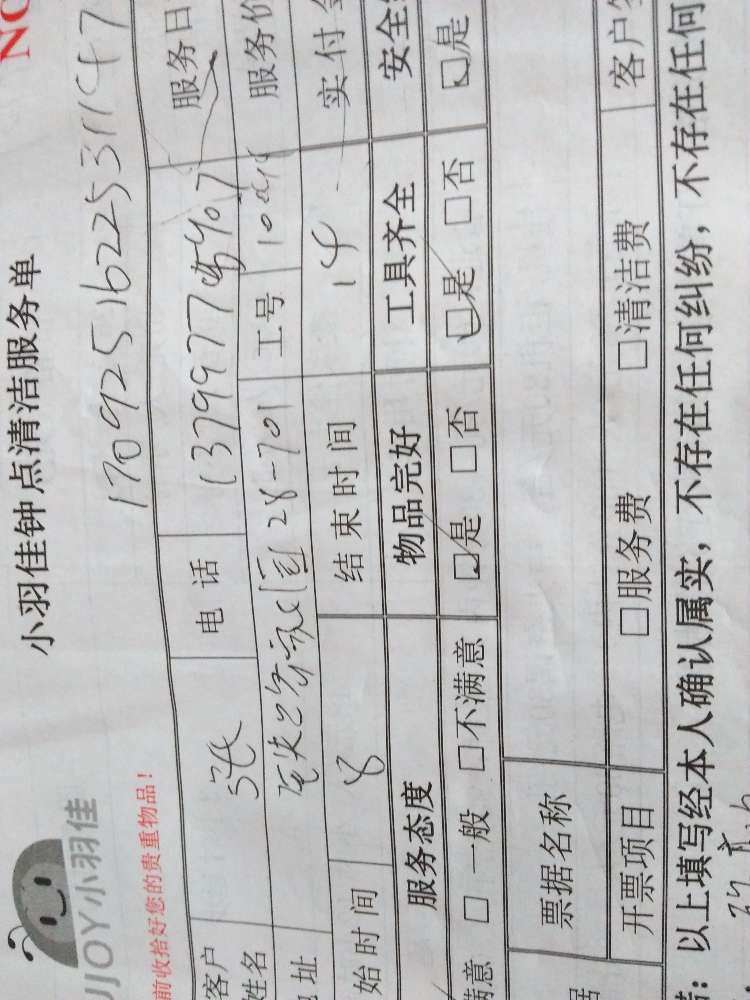 NO
小羽佳钟点清洁服务单
UJOY小羽佳
1709251622531147
前收拾好您的贵重物品！
客户 张 电话 服务日
姓名
址 28-701 工号 服务价
始时间 8 结束时间 14 实付
服务态度 物品完好 工具齐全 安全
满意 □一般 □不满意 ☑是 □否 ☑是 □否 ☑是
票据名称
开票项目 □服务费 □清洁费 客户
以上填写经本人确认属实，不存在任何纠纷，不存在任何